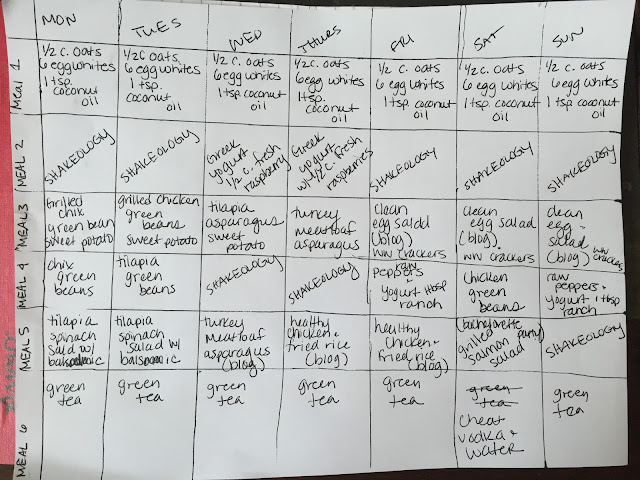 MON TUES WED THURS FRI SAT SUN
MEAL 1
1/2 c. oats
6 egg whites
1 tsp.
coconut
oil
1/2 c oats.
6 egg whites
1 tsp.
coconut
oil
1/2 c. oats
6 egg whites
1 tsp. coconut
oil
1/2 c. oats
6 egg whites
1 tsp.
coconut
oil
1/2 c. oats
6 egg whites
1 tsp coconut
oil
1/2 c. oats
6 egg whites
1 tsp. coconut
oil
1/2 c. oats
6 egg whites
1 tsp coconut
oil
MEAL 2
SHAKEOLOGY
SHAKEOLOGY
Greek
yogurt
1/2 c. fresh
raspberry
Greek
yogurt
w/ 1/2 c. fresh
raspberries
SHAKEOLOGY
SHAKEOLOGY
SHAKEOLOGY
MEAL 3
Grilled
chik
green bean
sweet potato
grilled chicken
green
beans
sweet potato
tilapia
asparagus
sweet
potato
turkey
meatloaf
asparagus
clean
egg salad
(blog)
WW crackers
clean
egg salad
(blog).
WW crackers
clean
egg
salad
(blog) WW
crackers
MEAL 4
chix
green
beans
tilapia
green
beans
SHAKEOLOGY
SHAKEOLOGY
raw
peppers +
yogurt 1 tbsp
ranch
chicken
green
beans
raw
peppers +
yogurt 1 tbsp
ranch
MEAL 5
tilapia
spinach
salad w/
balsamic
tilapia
spinach
salad w/
balsamic
turkey
meatloaf
asparagus
(blog)
healthy
chicken +
fried rice
(blog)
healthy
chicken +
fried rice
(blog)
(bachelorette
party)
grilled
salmon
salad
SHAKEOLOGY
MEAL 6
green
tea
green
tea
green
tea
green
tea
green
tea
green
tea
cheat
vodka +
water
green
tea